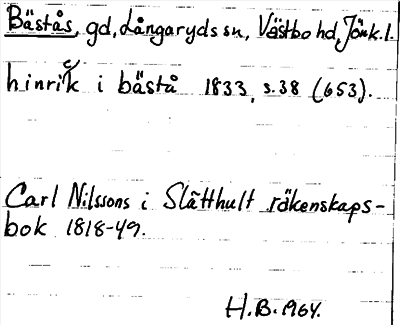 Bästås, gd, Långaryds sn, Västbo hd, Jönk.l.
hinrik i bästå 1833, s.38 (653).
Carl Nilssons i Slätthult räkenskaps-
bok 1818-49.
H.B. 1964.